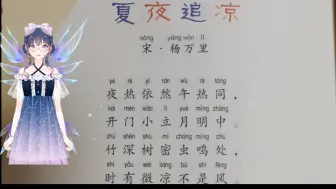 夏夜追凉
sòng yáng wàn lǐ
宋·杨万里
yè rè yī rán wǔ rè tóng
夜热依然午热同，
kāi mén xiǎo lì yuè míng zhōng
开门小立月明中
zhú shēn shù mì chóng míng chù
竹深树密虫鸣处，
shí yǒu wēi liáng bú shì fēng
时有微凉不是风